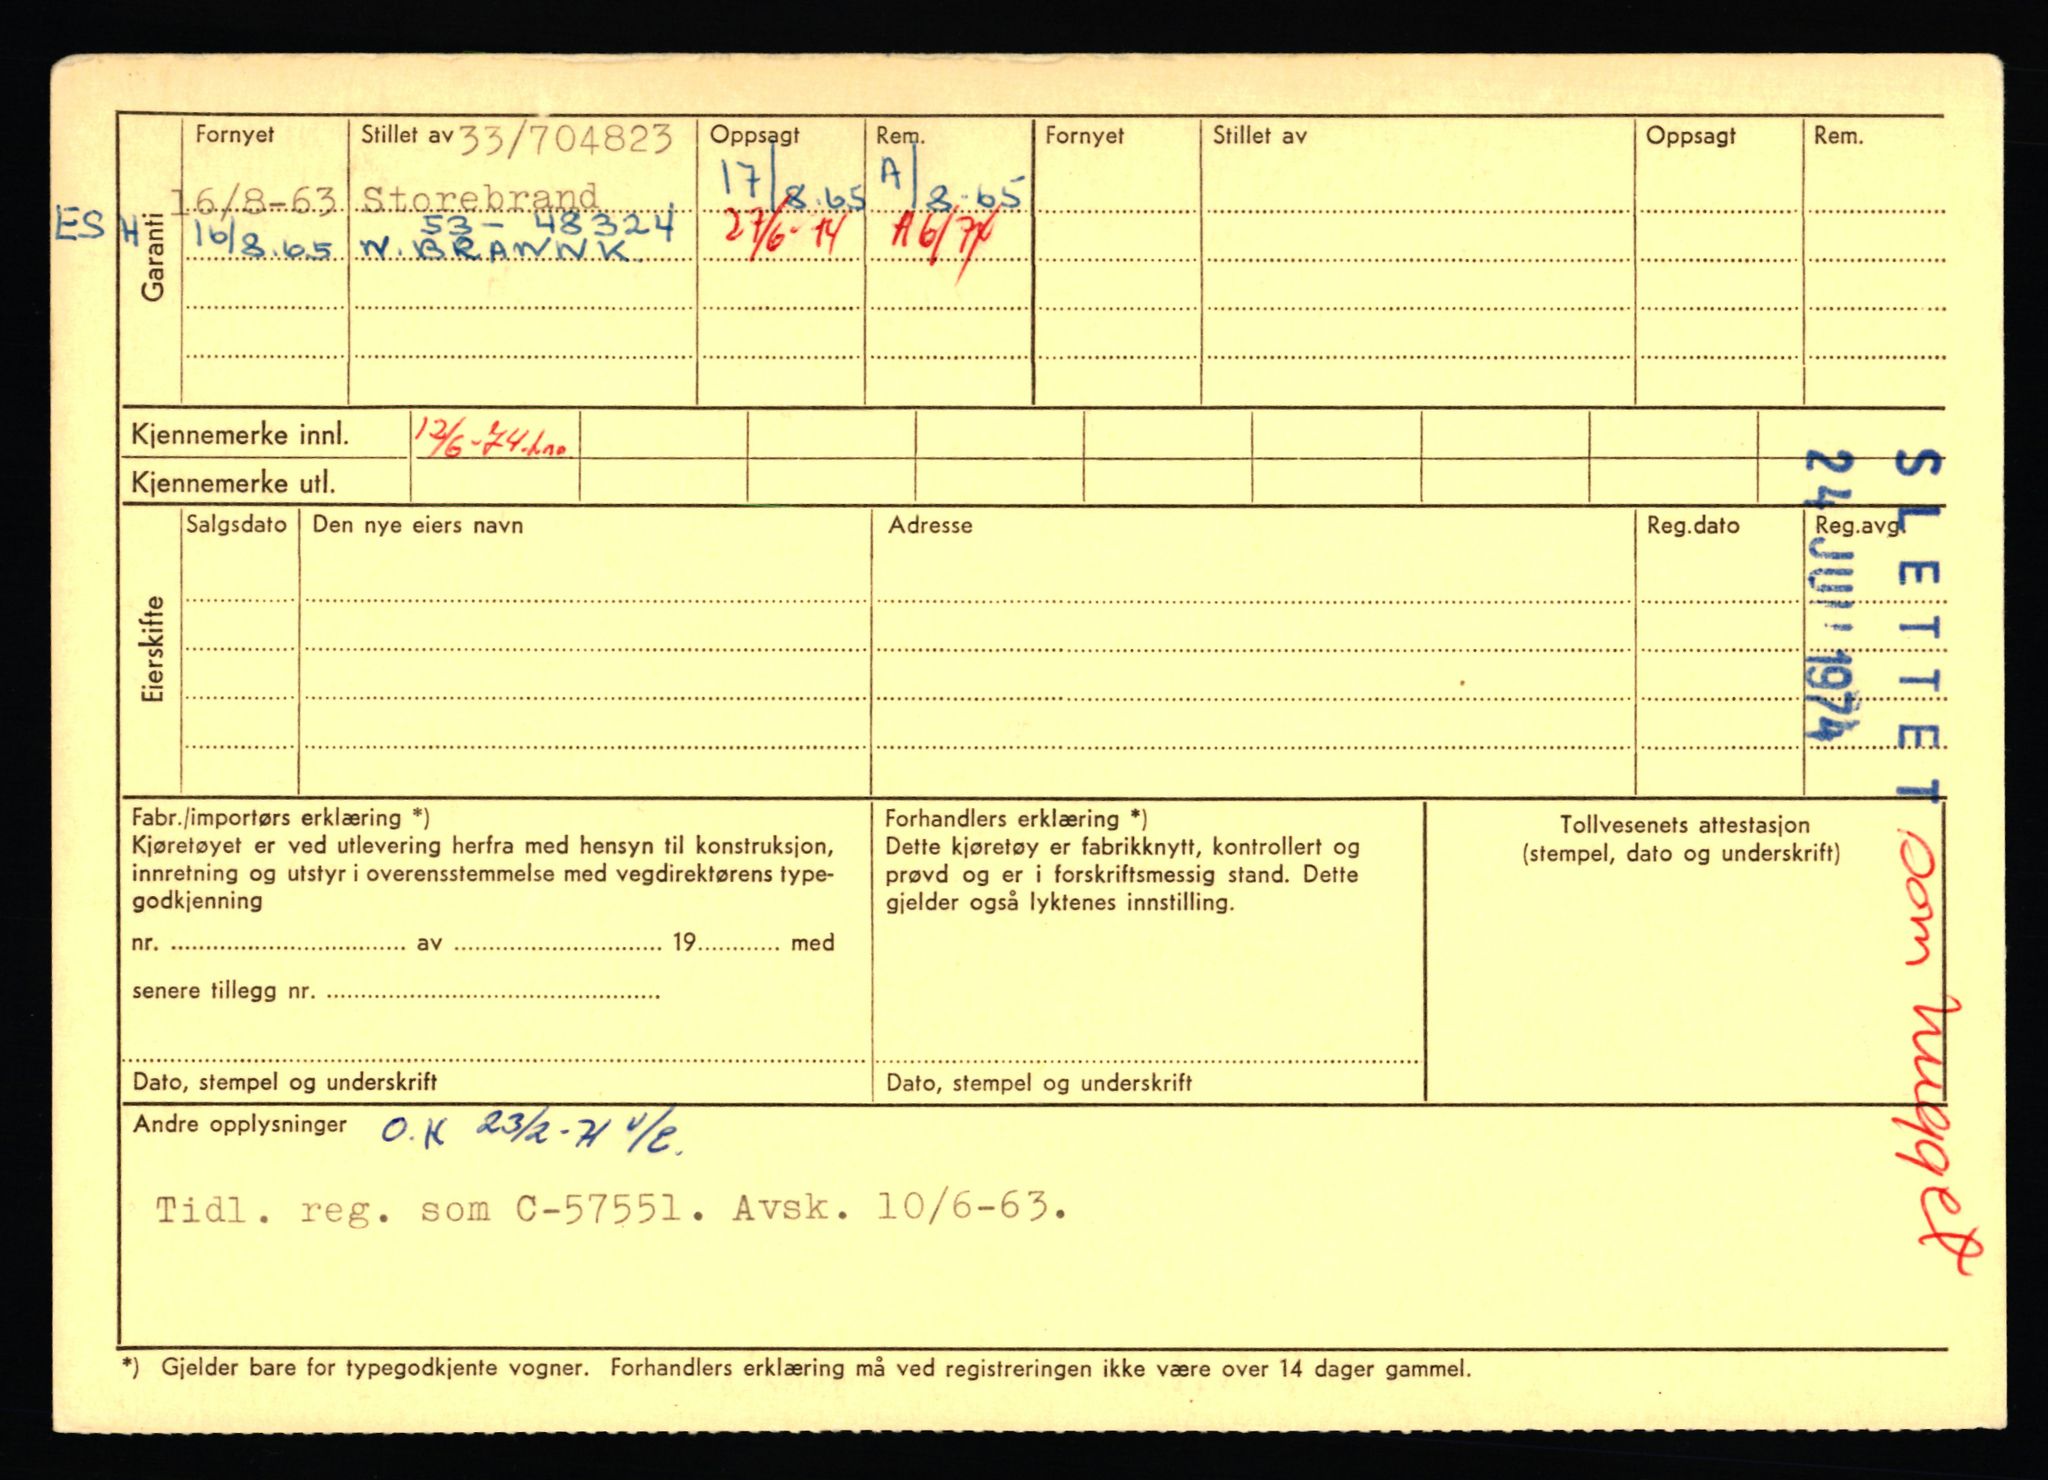 Garanti
Fornyet Stillet av 33/704823 Oppsagt Rem. Fornyet Stillet av Oppsagt Rem.
16/8-63 Storebrand 17/8.65 A/8-65
ES H 16/8.65 53-48324 27/6-74 A 6/74
N. BRANNK.
Kjennemerke innl. 12/6-74
Kjennemerke utl.
Eierskifte
Salgsdato Den nye eiers navn Adresse Reg.dato Reg.avg.
SLETTET som hugget
24 JUNI 1974
Fabr./importørs erklæring *)
Kjøretøyet er ved utlevering herfra med hensyn til konstruksjon,
innretning og utstyr i overensstemmelse med vegdirektørens type-
godkjenning
nr. .......... av .......... 19.......... med
senere tillegg nr. ..........
Dato, stempel og underskrift
Forhandlers erklæring *)
Dette kjøretøy er fabrikknytt, kontrollert og
prøvd og er i forskriftsmessig stand. Dette
gjelder også lyktenes innstilling.
Dato, stempel og underskrift
Tollvesenets attestasjon
(stempel, dato og underskrift)
Andre opplysninger O.K 23/2-71
Tidl. reg. som C-57551. Avsk. 10/6-63.
*) Gjelder bare for typegodkjente vogner. Forhandlers erklæring må ved registreringen ikke være over 14 dager gammel.